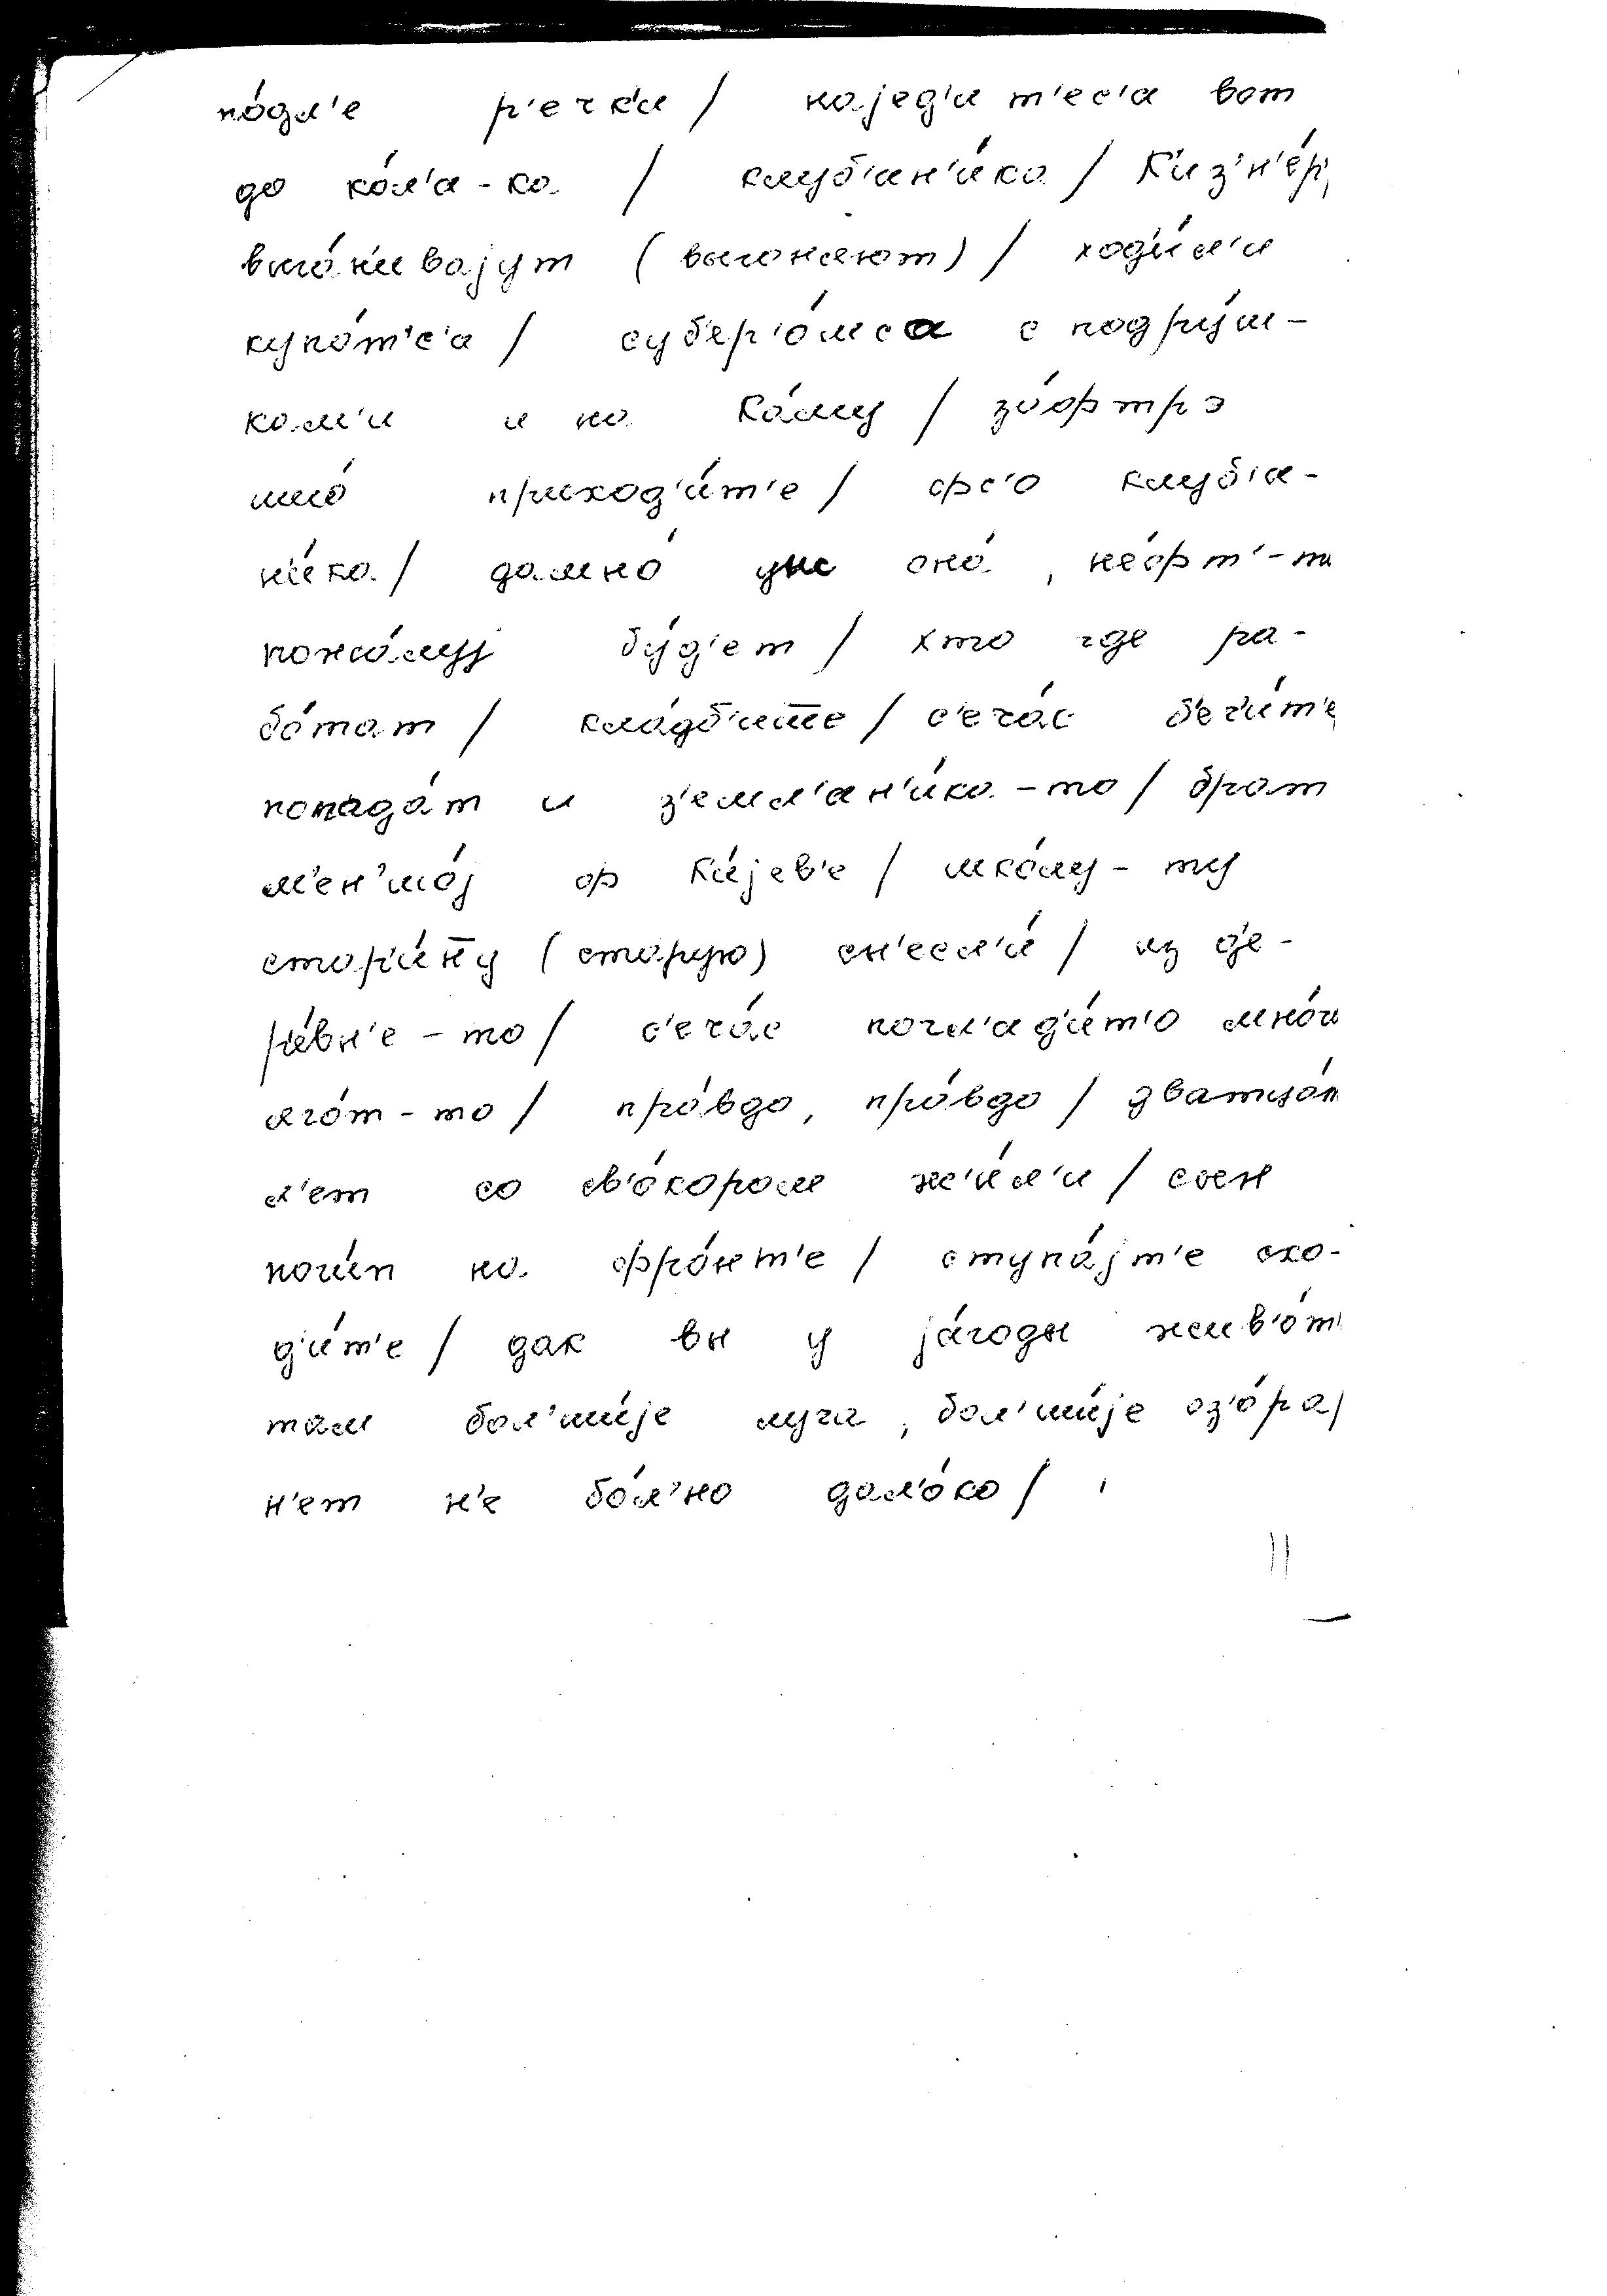 по́дл'е р'ечк'и / најед'и т'ес'а вот
до ко́л'а-ка / клуб'ин'и́ка / К'из'н'е́р,
выга́н'ивајут (выгоняют) / ход'и́л'и
купа́т'с'а / суб'ер'о́мса с подру́ш-
кам'и и на Ка́му / за́фтрэ
ишо́ приход'и́т'е / фс'о клуб'и-
н'и́ка / давно́ уж она́, не́фт'-та
пожа́луј бу́д'ет / хто где ра-
бо́тат / кла́дб'ише / с'еча́с б'еги́т'е
попада́т и з'емл'ан'и́ка-то / брат
м'ен'шо́ј ф К'и́јев'е / шко́лу-ту
стари́ну (старую) сн'есл'и́ / из д'е-
ре́вн'е-то / с'еча́с погл'ад'и́т'о мно́г
яго́т-то / пра́вдо, пра́вдо / дватца́т
л'ет со св'о́кором жы́л'и / сын
поги́п на фро́нт'е / ступа́јт'е схо-
д'и́т'е / дак вы у ја́годы жыв'о́т'
там бол'ши́је луга, бол'ши́је оз'о́ра /
н'ет н'е бо́л'но дал'о́ко /